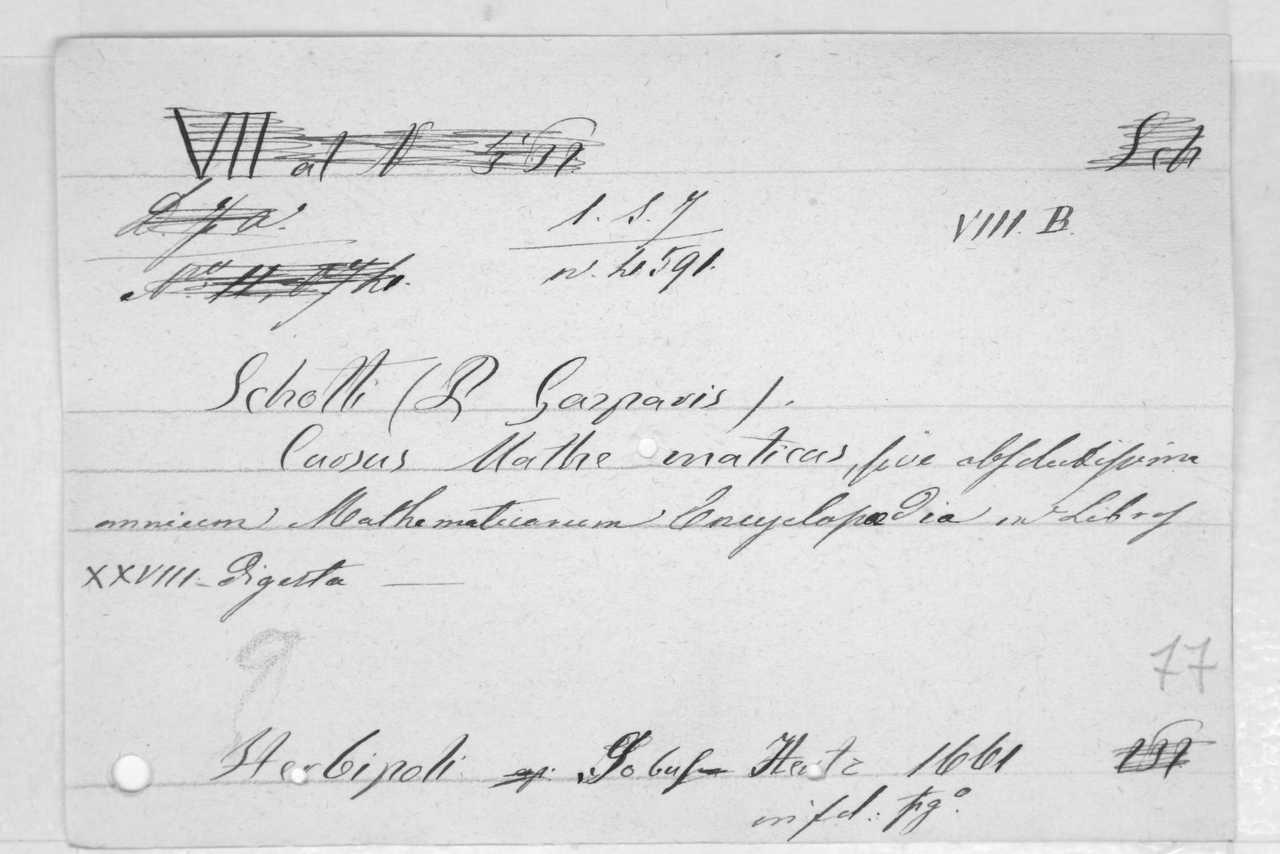 VII at N
Sch
1. S. 7
VIII. B.
n. 2591.
Schotti (P. Gasparis).
Cursus Mathematicus, sive absolutissima
omnium Mathematicarum Encyclopædia in Libros
XXVIII. Digesta —
9
77
Herbipoli ap. Jobus Hertz 1661
in fol: fig.º